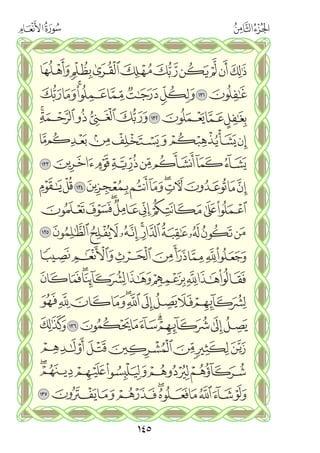 الجزء الثامن سورة الأنعام
ذَٰلِكَ أَن لَّمْ يَكُن رَّبُّكَ مُهْلِكَ ٱلْقُرَىٰ بِظُلْمٍ وَأَهْلُهَا
غَٰفِلُونَ ١٣١ وَلِكُلٍّ دَرَجَٰتٌ مِّمَّا عَمِلُوا۟ ۚ وَمَا رَبُّكَ
بِغَٰفِلٍ عَمَّا يَعْمَلُونَ ١٣٢ وَرَبُّكَ ٱلْغَنِىُّ ذُو ٱلرَّحْمَةِ ۚ
إِن يَشَأْ يُذْهِبْكُمْ وَيَسْتَخْلِفْ مِنۢ بَعْدِكُم مَّا
يَشَآءُ كَمَآ أَنشَأَكُم مِّن ذُرِّيَّةِ قَوْمٍ ءَاخَرِينَ ١٣٣
إِنَّ مَا تُوعَدُونَ لَءَاتٍ ۖ وَمَآ أَنتُم بِمُعْجِزِينَ ١٣٤ قُلْ يَٰقَوْمِ
ٱعْمَلُوا۟ عَلَىٰ مَكَانَتِكُمْ إِنِّى عَامِلٌ ۖ فَسَوْفَ تَعْلَمُونَ
مَن تَكُونُ لَهُۥ عَٰقِبَةُ ٱلدَّارِ ۗ إِنَّهُۥ لَا يُفْلِحُ ٱلظَّٰلِمُونَ ١٣٥
وَجَعَلُوا۟ لِلَّهِ مِمَّا ذَرَأَ مِنَ ٱلْحَرْثِ وَٱلْأَنْعَٰمِ نَصِيبًا
فَقَالُوا۟ هَٰذَا لِلَّهِ بِزَعْمِهِمْ وَهَٰذَا لِشُرَكَآئِنَا ۖ فَمَا كَانَ
لِشُرَكَآئِهِمْ فَلَا يَصِلُ إِلَى ٱللَّهِ ۖ وَمَا كَانَ لِلَّهِ فَهُوَ
يَصِلُ إِلَىٰ شُرَكَآئِهِمْ ۗ سَآءَ مَا يَحْكُمُونَ ١٣٦ وَكَذَٰلِكَ
زَيَّنَ لِكَثِيرٍ مِّنَ ٱلْمُشْرِكِينَ قَتْلَ أَوْلَٰدِهِمْ
شُرَكَآؤُهُمْ لِيُرْدُوهُمْ وَلِيَلْبِسُوا۟ عَلَيْهِمْ دِينَهُمْ ۖ
وَلَوْ شَآءَ ٱللَّهُ مَا فَعَلُوهُ ۖ فَذَرْهُمْ وَمَا يَفْتَرُونَ ١٣٧
١٤٥